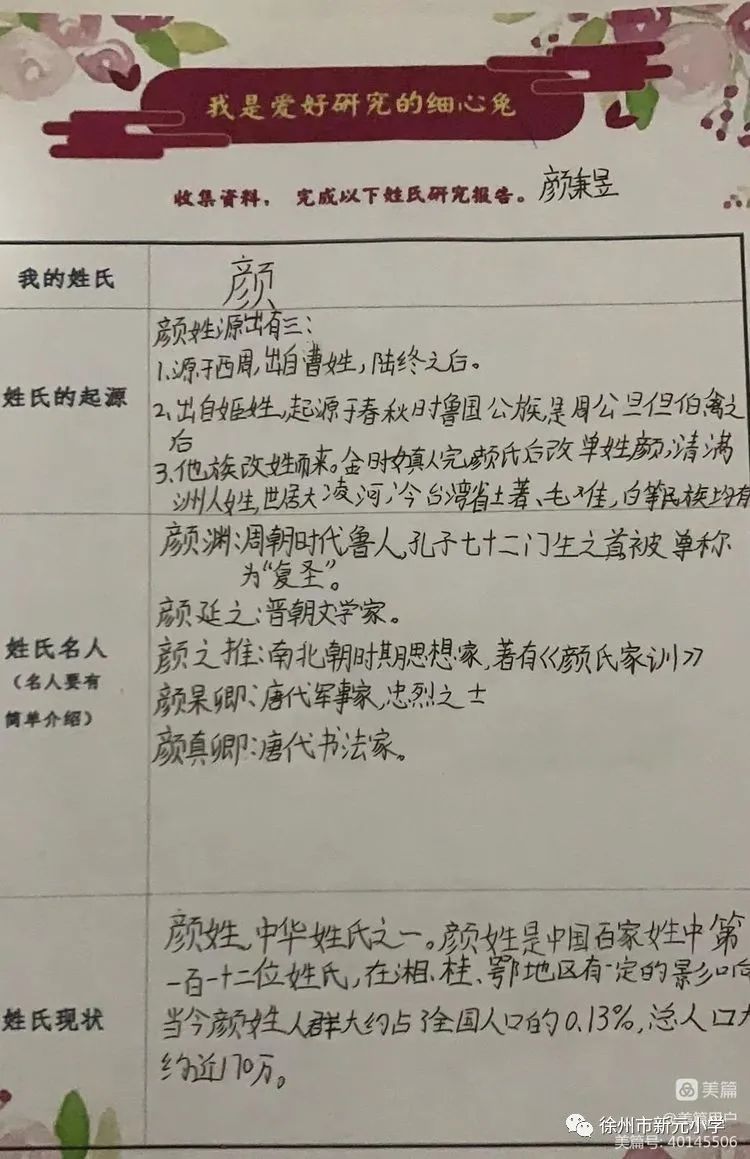 我是爱好研究的细心兔
收集资料， 完成以下姓氏研究报告。 颜秉昱
我的姓氏
颜
姓氏的起源
颜姓源出有三：
1.源于西周,出自曹姓，陆终之后。
2.出自姬姓,起源于春秋时鲁国公族,是周公旦但伯禽之
后
3.他族改姓而来。金时女真人完颜氏后改单姓颜；清满
洲人姓，世居大凌河；今台湾省土著、毛难，白等民族均有
姓氏名人
（名人要有
简单介绍）
颜渊：周朝时代鲁人,孔子七十二门生之首被尊称
为“复圣”。
颜延之：晋朝文学家。
颜之推：南北朝时期思想家,著有《颜氏家训》
颜杲卿：唐代军事家,忠烈之士
颜真卿：唐代书法家。
姓氏现状
颜姓,中华姓氏之一。颜姓是中国百家姓中第
一百一十二位姓氏，在湘、桂、鄂地区有一定的影响
当今颜姓人群大约占了全国人口的0.13%，总人口大
约近170万。
美篇
@美篇用户
徐州市新元小学
美篇号: 40145506